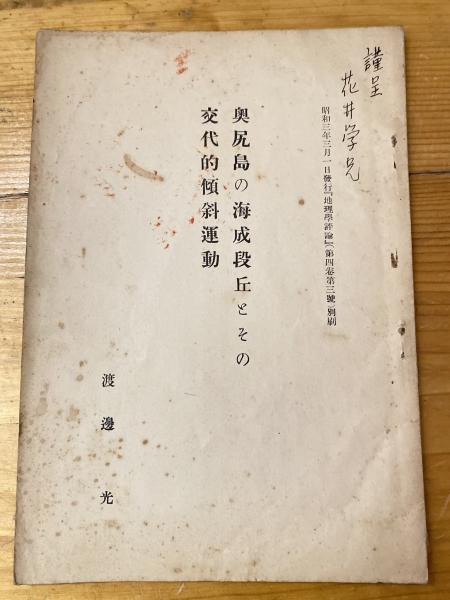 謹呈
花井学兄
昭和三年三月一日發行『地理學評論』(第四卷第三號)別刷
奥尻島の海成段丘とその
交代的傾斜運動
渡邊光